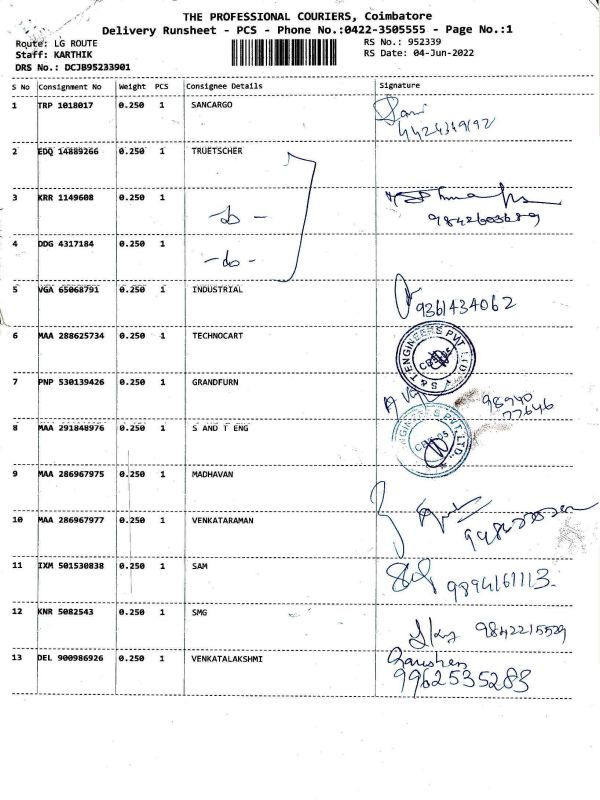 THE PROFESSIONAL COURIERS, Coimbatore
Delivery Runsheet - PCS - Phone No.:0422-3505555 - Page No.:1
Route: LG ROUTE RS No.: 952339
Staff: KARTHIK RS Date: 04-Jun-2022
DRS No.: DCJB95233901
S No Consignment No Weight PCS Consignee Details Signature
1 TRP 1018017 0.250 1 SANCARGO
2 EDQ 14889266 0.250 1 TRUETSCHER
3 KRR 1149608 0.250 1 -do-
9842603689
4 DDG 4317184 0.250 1 -do-
5 VGA 65068791 0.250 1 INDUSTRIAL 9361434062
6 MAA 288625734 0.250 1 TECHNOCART
S & T ENGINEERS PVT LTD.
7 PNP 530139426 0.250 1 GRANDFURN
98940
77646
8 MAA 291848976 0.250 1 S AND T ENG
9 MAA 286967975 0.250 1 MADHAVAN
10 MAA 286967977 0.250 1 VENKATARAMAN
11 IXM 501530838 0.250 1 SAM 9894161113
12 KNR 5082543 0.250 1 SMG 9842215529
13 DEL 900986926 0.250 1 VENKATALAKSHMI
9962535283